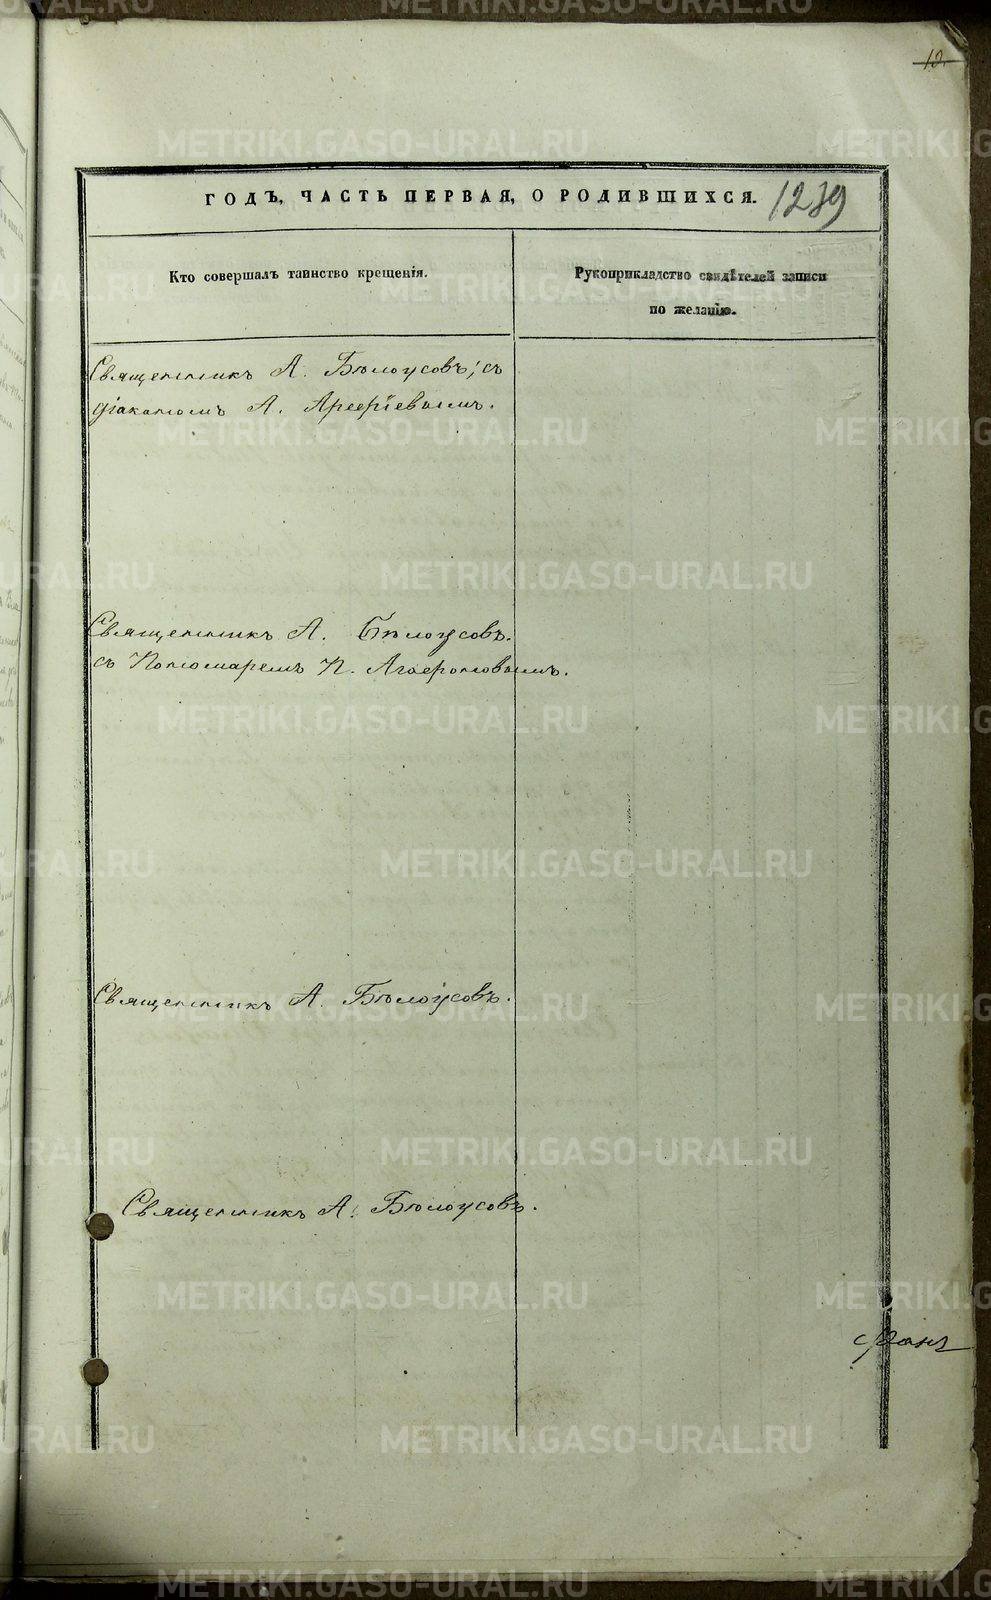 10.
ГОДЪ, ЧАСТЬ ПЕРВАЯ, О РОДИВШИХСЯ. 1239
Кто совершалъ таинство крещенія.
Рукоприкладство свидѣтелей записи
по желанію.
Священникъ А. Бѣлоусовъ; съ
діакономъ А. Арефіевымъ.
Священникъ А. Бѣлоусовъ.
съ Пономаремъ П. Агафоновымъ.
Священникъ А. Бѣлоусовъ.
Священникъ А. Бѣлоусовъ.
METRIKI.GASO-URAL.RU